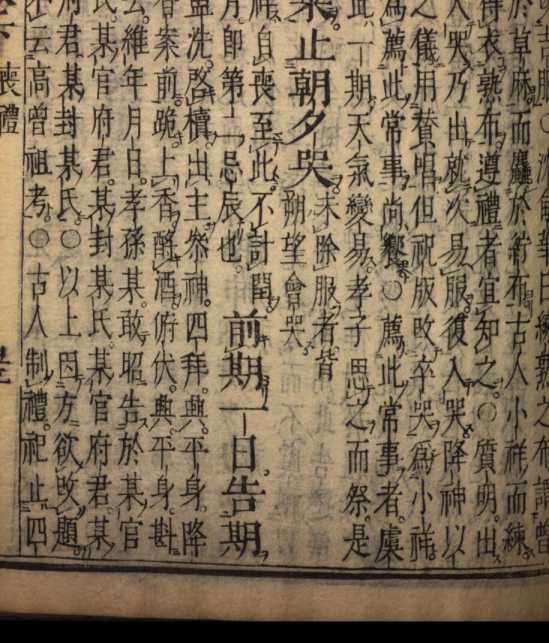 於草麻而麤於紵布古人小祥而練
待衣熟布遵禮者宜知之○質明出
入哭乃出就次易服復入哭降神以
之儀用贊唱但祝版改卒哭爲小祥
薦此常事尚饗○薦此常事者虞
此一期天氣變易孝子思之而祭是
止朝夕哭未除服者皆
朔望會哭
祥自喪至此不計閏前期一日告期
月即第二忌辰也
盥洗啓櫝出主叅神四拜興平身降
香案前跪上香酹酒俯伏興平身斟
維年月日孝孫某敢昭告於某官
某官府君某封某氏某官府君某
府君某封某氏○以上因方欲改題
不云高曾祖考○古人制禮祀止四
喪禮